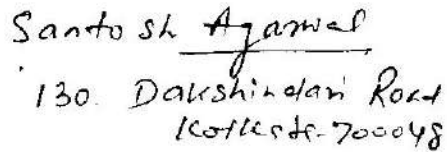 Santosh Agarwal
130. Dakshindari Road
Kolkata-700048